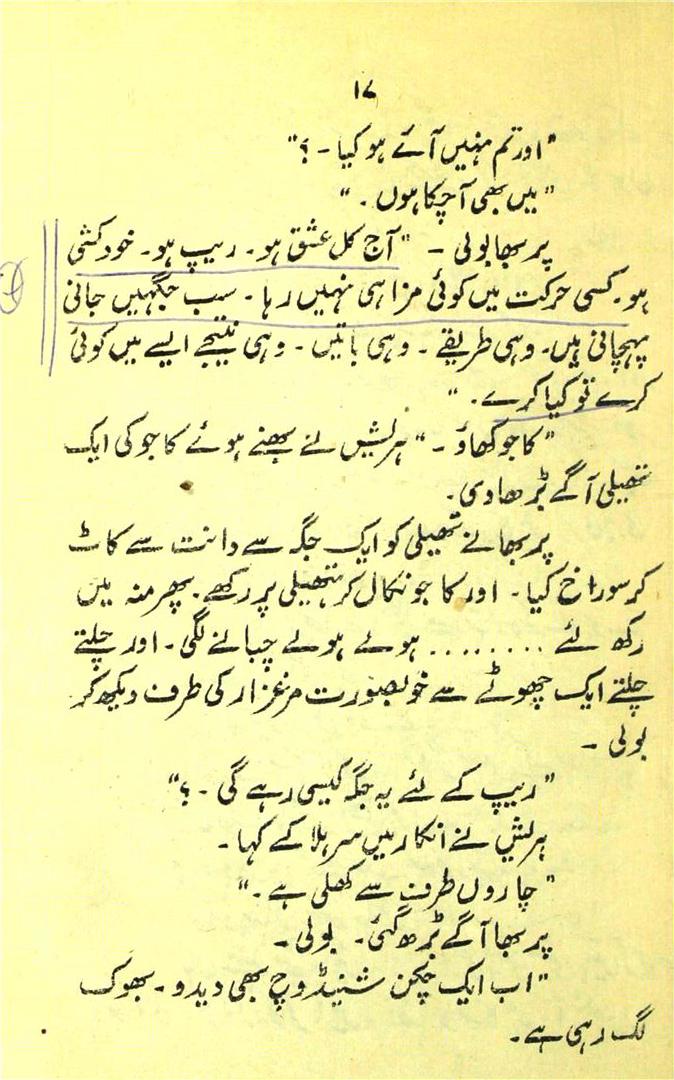 ۱۷
"اور تم نہیں آئے ہو کیا - ؟"
"میں بھی آ چکا ہوں ۔ "
پربھا بولی - "آج کل عشق ہو ۔ ریپ ہو ۔ خودکشی
ہو ۔ کسی حرکت میں کوئی مزا ہی نہیں رہا ۔ سب جگہیں جانی
پہچانی ہیں ۔ وہی طریقے ۔ وہی باتیں ۔ وہی نتیجے ایسے میں کوئی
کرے تو کیا کرے ۔ "
"کاجو کھاؤ ۔ " ہریش نے بھنے ہوئے کاجو کی ایک
تھیلی آگے بڑھا دی ۔
پربھا نے تھیلی کو ایک جگہ سے دانت سے کاٹ
کر سوراخ کیا ۔ اور کاجو نکال کر ہتھیلی پر رکھے ۔ پھر منہ میں
رکھ لئے ........ ہولے ہولے چبانے لگی ۔ اور چلتے
چلتے ایک چھوٹے سے خوبصورت مرغزار کی طرف دیکھ کر
بولی -
"ریپ کے لئے یہ جگہ کیسی رہے گی - ؟"
ہریش نے انکار میں سر ہلا کے کہا ۔
"چاروں طرف سے کھلی ہے ۔"
پربھا آگے بڑھ گئی ۔ بولی ۔
"اب ایک چکن سینڈوچ بھی دیدو ۔ بھوک
لگ رہی ہے ۔